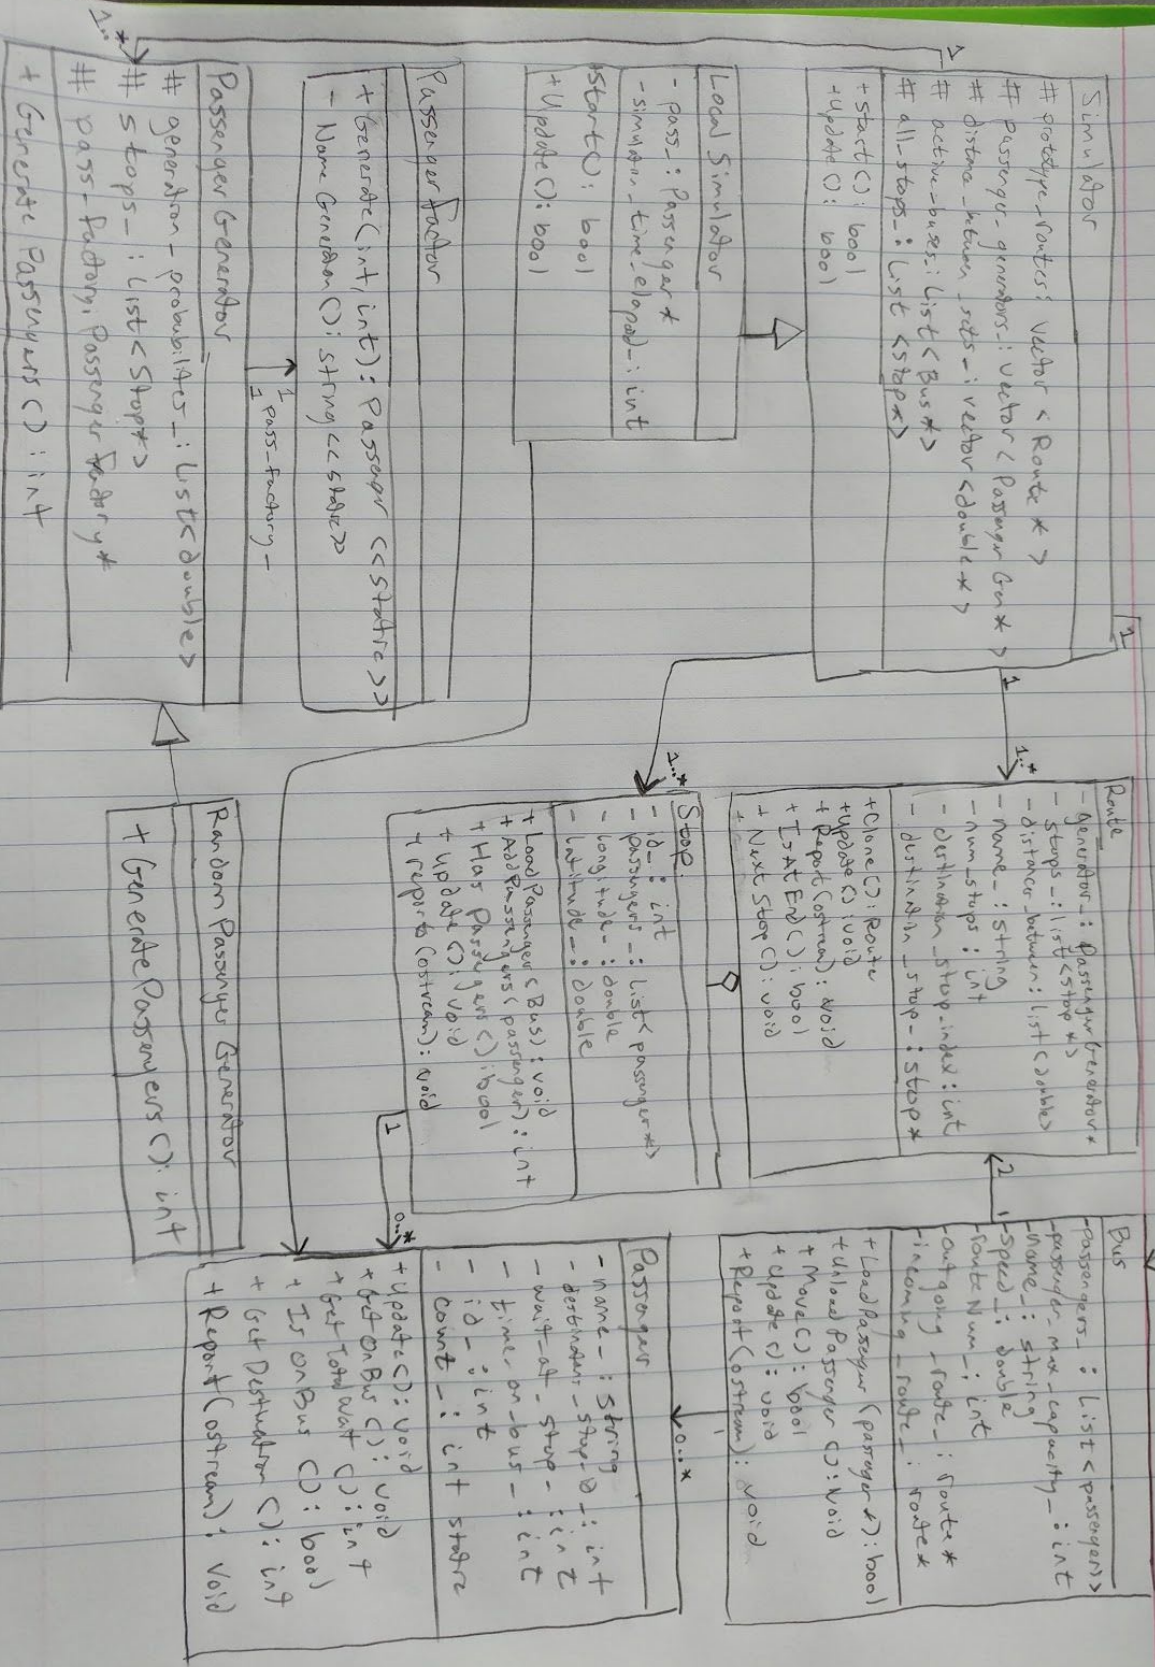 Simulator
# prototype_routes: vector <Route *>
# passenger_generators_: vector <Passenger Gen *>
# distance_between_sets_: vector<double *>
# active_buses_: List <Bus *>
# all_stops_: List <stop *>
+ start(): bool
+ update(): bool
1
1..*
1
1
1..*
Local Simulator
- pass_: Passenger *
- simulation_time_elapsed_: int
+Start(): bool
+ Update(): bool
Passenger Factor
+ Generate(int, int): Passenger <<static>>
- Name Generation(): string <<static>>
1
1
pass_factory_
Passenger Generator
# generation_probabilities_: List<double>
# stops_: List <Stop*>
# pass_factory: Passenger Factory *
+ Generate Passengers(): int
Random Passenger Generator
+ Generate Passengers(): int
Route
- generator_: Passenger Generator*
- stops_: list <stop *>
- distance_between: list <double>
- name_: string
- num_stops: int
- destination_stop_index: int
- destination_stop_: stop *
+Clone(): Route
+update(): void
+ Report(ostream): void
+IsAtEnd(): bool
+ Next Stop(): void
+
1..*
Stop
- id_: int
- passengers_: list<passenger *>
- longitude_: double
- latitude_: double
+ Load Passenger (Bus): void
+ Add Passengers (passenger): int
+ Has Passengers(): bool
+ update(): void
+ report(ostream): void
1
0..*
2
1
Bus
-passengers_: List<passengers>
-passenger_max_capacity_: int
-name_: string
-speed_: double
-route Num_: int
-outgoing_route_: route *
-incoming_route_: route *
+Load Passenger (passenger *): bool
+Unload Passenger(): void
+ Move(): bool
+ Update(): void
+Report(ostream): void
0..*
Passenger
- name_: string
- wait_at_stop_: int
- time_on_bus_: int
- id_: int
- count_: int static
+Update(): void
+Get On Bus(): void
+Get Total Wait(): int
+ Is On Bus(): bool
+ Get Destination(): int
+ Report(ostream): void